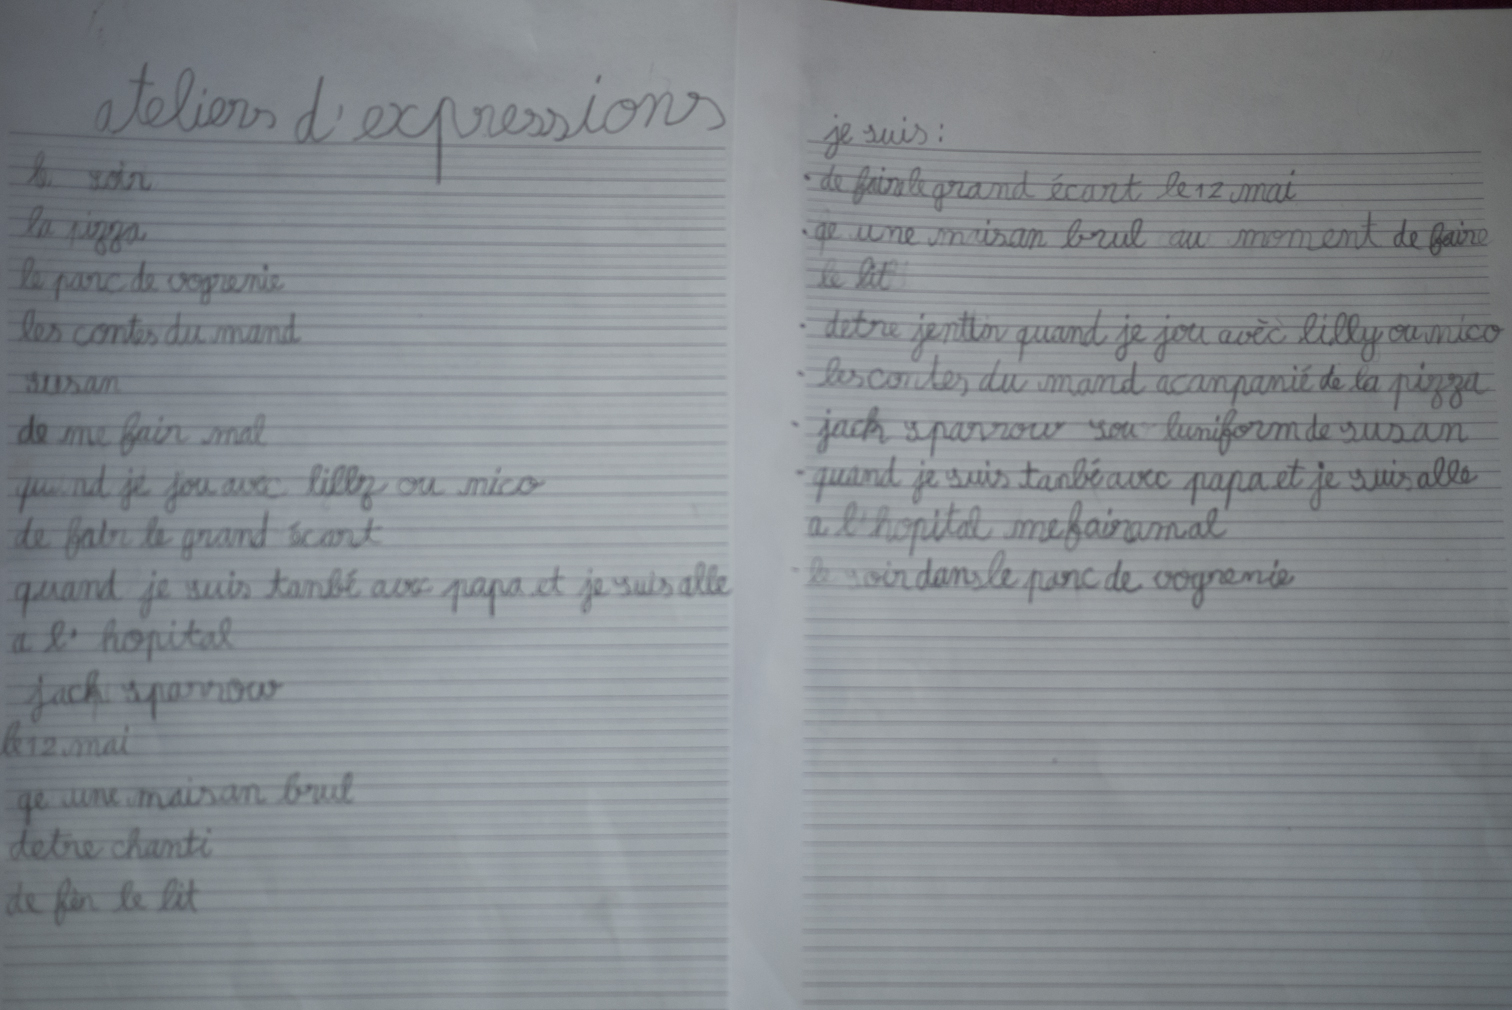 ateliers d'expressions
le soir
la pizza
le parc de vogrenie
les contes du mand
susan
de me fair mal
quand je jou avec lilly ou mico
de fair le grand écart
quand je suis tanbé avec papa et je suis alle
a l' hopital
jack sparrow
le 12 mai
qe une maisan brul
detre chanti
de fer le lit
je suis :
· de faire le grand écart le 12 mai
· qe une maisan brul au moment de faire
le lit
· detre jenttin quand je jou avèc lilly ou mico
· les contes du mand acanpanié de la pizza
· jack sparrow sou luniform de susan
· quand je suis tanbé avec papa et je suis alle
a l'hopital me faira mal
· le soir dans le parc de vogrenie